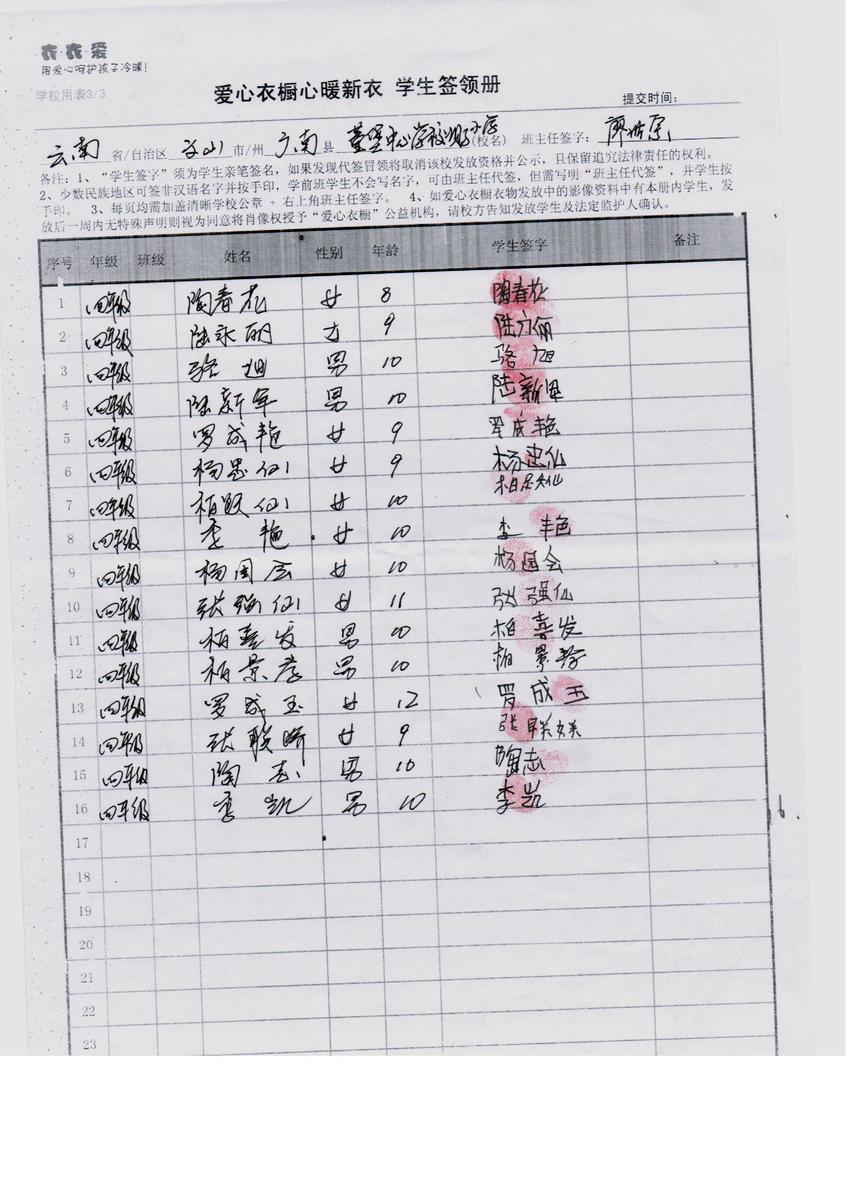 衣·衣·爱
用爱心呵护孩子冷暖！
学校用表3/3
爱心衣橱心暖新衣 学生签领册
提交时间：
云南 省/自治区 文山 市/州 广南 县 (校名) 班主任签字：
备注：1、“学生签字”须为学生亲笔签名，如果发现代签冒领将取消该校发放资格并公示，且保留追究法律责任的权利。
2、少数民族地区可签非汉语名字并按手印，学前班学生不会写名字，可由班主任代签，但需写明“班主任代签”，并学生按
手印。 3、每页均需加盖清晰学校公章 + 右上角班主任签字。 4、如爱心衣橱衣物发放中的影像资料中有本册内学生，发
放后一周内无特殊声明则视为同意将肖像权授予“爱心衣橱”公益机构，请校方告知发放学生及法定监护人确认。
序号 年级 班级 姓名 性别 年龄 学生签字 备注
1 四年级 陶春花 女 8 陶春花
2 四年级 陆永丽 女 9 陆永丽
3 四年级 骆旭 男 10 骆旭
4 四年级 陆新军 男 10 陆新
5 四年级 罗成艳 女 9 罗成艳
6 四年级 杨忠仙 女 9 杨忠仙
7 四年级 柏 仙 女 10 柏 仙
8 四年级 李艳 女 10 李艳
9 四年级 杨国会 女 10 杨国会
10 四年级 张强仙 女 11 张强仙
11 四年级 柏喜发 男 10 柏喜发
12 四年级 柏景 男 10 柏景
13 四年级 罗成玉 女 12 罗成玉
14 四年级 张联 女 9 张联
15 四年级 陶志 男 10 陶志
16 四年级 李凯 男 10 李凯
17
18
19
20
21
22
23